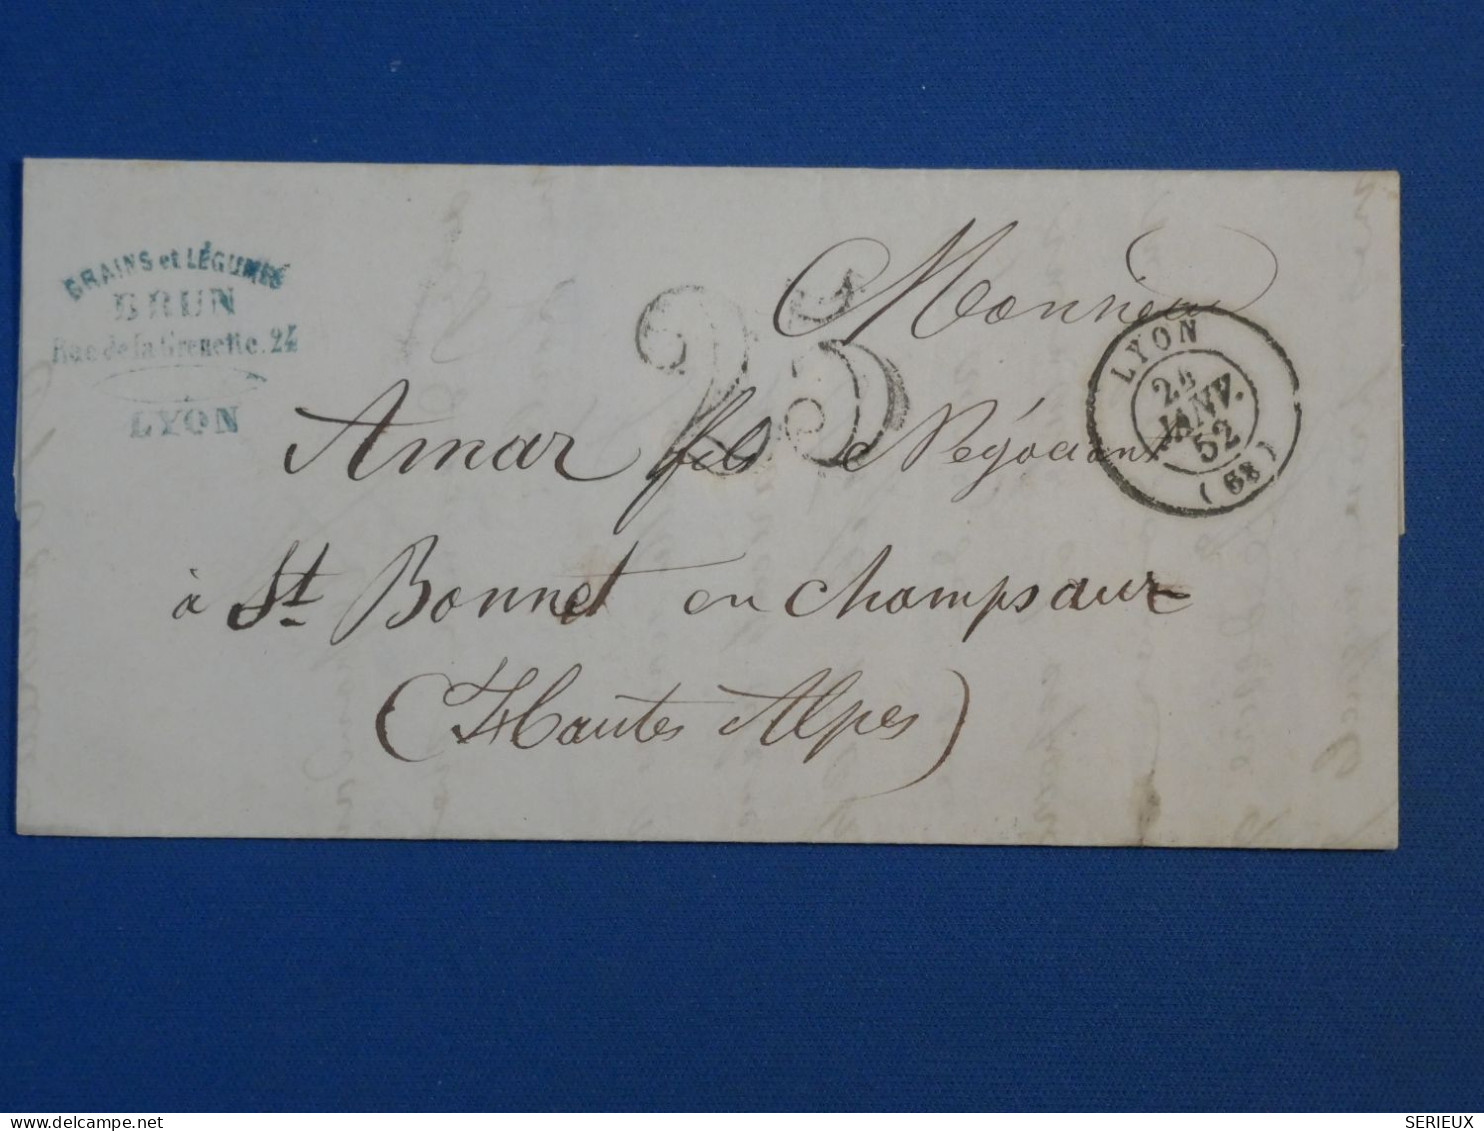 GRAINS et LÉGUMES
BRUN
Rue de la Grenette. 24
LYON
25
Monsieur
Amar fils Négociant
à St. Bonnet en Champsaur
(Hautes Alpes)
LYON
24
JANV.
52
(68)
delcampe.net
SERIEUX